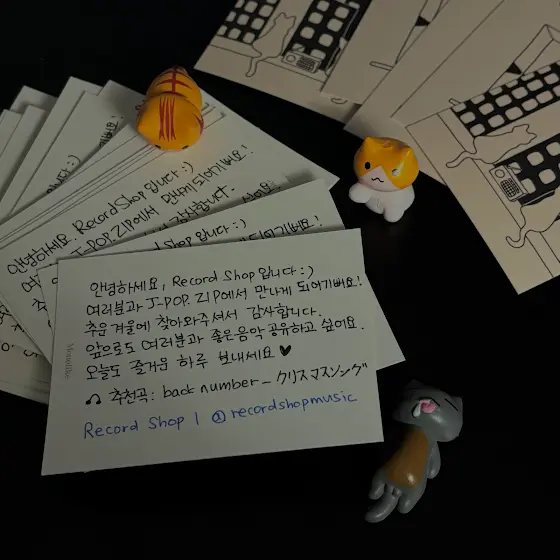 안녕하세요, Record Shop 입니다 :)
여러분과 J-POP. ZIP에서 만나게 되어기뻐요!
추운 겨울에 찾아와주셔서 감사합니다.
앞으로도 여러분과 좋은음악 공유하고 싶어요.
오늘도 즐거운 하루 보내세요 ♥
추천곡: back number _ クリスマスソング
Record Shop | @recordshopmusic
안녕하세요. Record Shop 입니다 :)
J-POP. ZIP에서 만나게 되어기뻐요!
감사합니다.